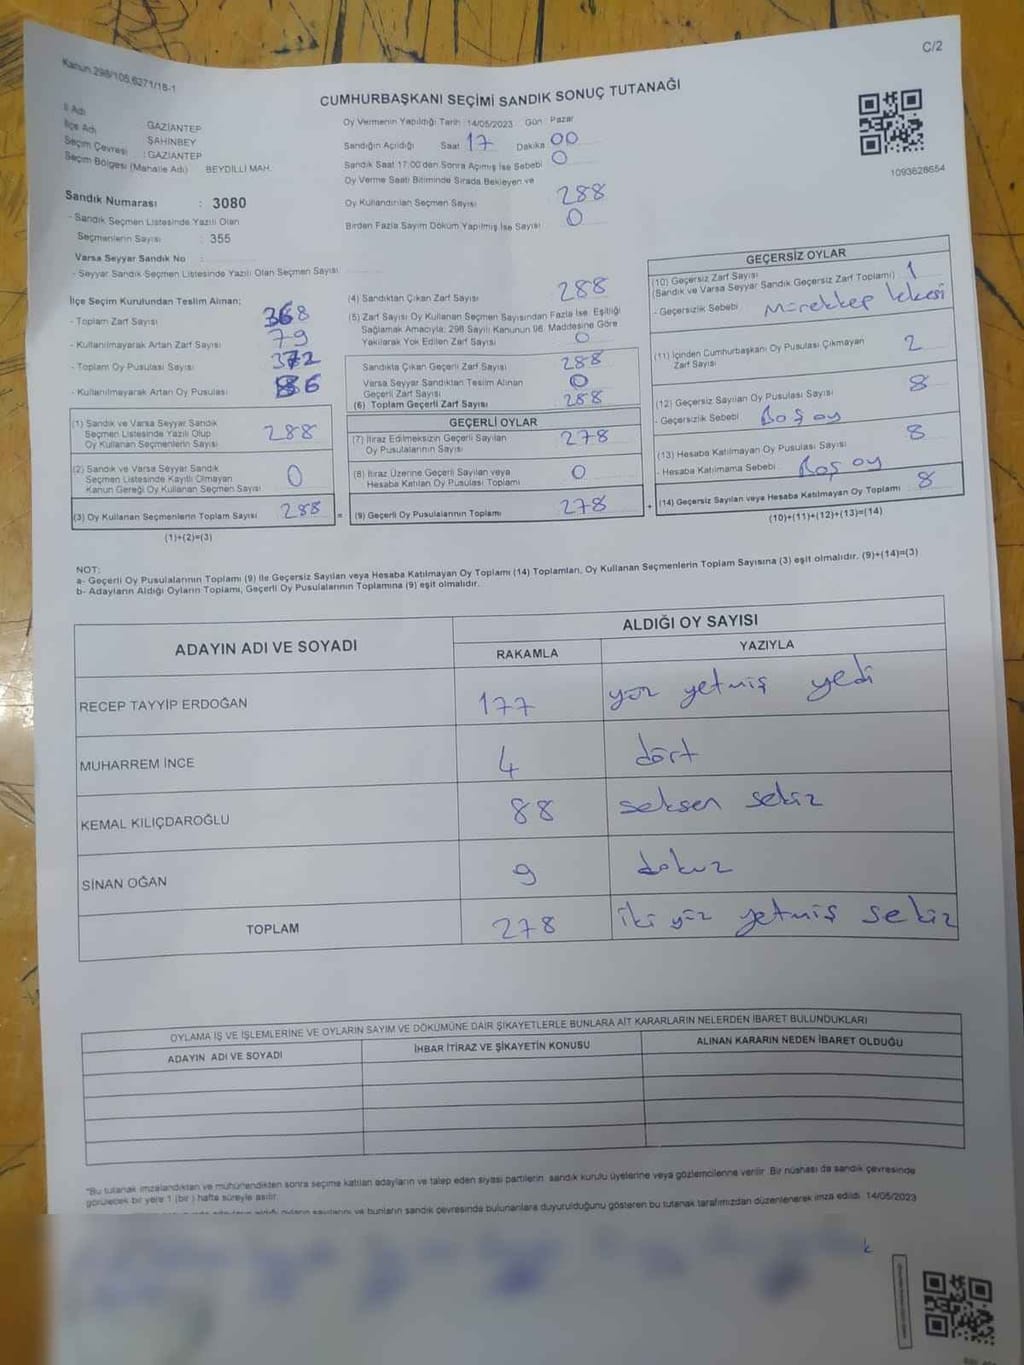 C/2
Kanun 298/105,6271/18-1
CUMHURBAŞKANI SEÇİMİ SANDIK SONUÇ TUTANAĞI
İl Adı GAZİANTEP
İlçe Adı ŞAHİNBEY
Seçim Çevresi : GAZİANTEP
Seçim Bölgesi (Mahalle Adı) BEYDİLLİ MAH.
Sandık Numarası : 3080
- Sandık Seçmen Listesinde Yazılı Olan
Seçmenlerin Sayısı : 355
Varsa Seyyar Sandık No :
- Seyyar Sandık Seçmen Listesinde Yazılı Olan Seçmen Sayısı
Oy Vermenin Yapıldığı Tarih : 14/05/2023 Gün : Pazar
Sandığın Açıldığı Saat 17 Dakika 00
Sandık Saat 17:00'den Sonra Açımış İse Sebebi 0
Oy Verme Saati Bitiminde Sırada Bekleyen ve
Oy Kullandırılan Seçmen Sayısı 288
Birden Fazla Sayım Döküm Yapılmış İse Sayısı 0
1093628654
İlçe Seçim Kurulundan Teslim Alınan;
- Toplam Zarf Sayısı 368
- Kullanılmayarak Artan Zarf Sayısı 79
- Toplam Oy Pusulası Sayısı 372
- Kullanılmayarak Artan Oy Pusulası 86
(1) Sandık ve Varsa Seyyar Sandık
Seçmen Listesinde Yazılı Olup
Oy Kullanan Seçmenlerin Sayısı 288
(2) Sandık ve Varsa Seyyar Sandık
Seçmen Listesinde Kayıtlı Olmayan
Kanun Gereği Oy Kullanan Seçmen Sayısı 0
(3) Oy Kullanan Seçmenlerin Toplam Sayısı 288 =
(1)+(2)=(3)
(4) Sandıktan Çıkan Zarf Sayısı 288
(5) Zarf Sayısı Oy Kullanan Seçmen Sayısından Fazla İse, Eşitliği
Sağlamak Amacıyla; 298 Sayılı Kanunun 98. Maddesine Göre
Yakılarak Yok Edilen Zarf Sayısı 0
Sandıkta Çıkan Geçerli Zarf Sayısı 288
Varsa Seyyar Sandıktan Teslim Alınan
Geçerli Zarf Sayısı 0
(6) Toplam Geçerli Zarf Sayısı 288
GEÇERLİ OYLAR
(7) İtiraz Edilmeksizin Geçerli Sayılan
Oy Pusulalarının Sayısı 278
(8) İtiraz Üzerine Geçerli Sayılan veya
Hesaba Katılan Oy Pusulası Toplamı 0
(9) Geçerli Oy Pusulalarının Toplamı 278 +
GEÇERSİZ OYLAR
(10) Geçersiz Zarf Sayısı
(Sandık ve Varsa Seyyar Sandık Geçersiz Zarf Toplamı) 1
- Geçersizlik Sebebi : Mürekkep lekesi
(11) İçinden Cumhurbaşkanı Oy Pusulası Çıkmayan
Zarf Sayısı 2
(12) Geçersiz Sayılan Oy Pusulası Sayısı 8
- Geçersizlik Sebebi : Boş oy
(13) Hesaba Katılmayan Oy Pusulası Sayısı 8
- Hesaba Katılmama Sebebi : Boş oy
(14) Geçersiz Sayılan veya Hesaba Katılmayan Oy Toplamı 8
(10)+(11)+(12)+(13)=(14)
NOT:
a- Geçerli Oy Pusulalarının Toplamı (9) ile Geçersiz Sayılan veya Hesaba Katılmayan Oy Toplamı (14) Toplamları, Oy Kullanan Seçmenlerin Toplam Sayısına (3) eşit olmalıdır. (9)+(14)=(3)
b- Adayların Aldığı Oyların Toplamı, Geçerli Oy Pusulalarının Toplamına (9) eşit olmalıdır.
ADAYIN ADI VE SOYADI ALDIĞI OY SAYISI
RAKAMLA YAZIYLA
RECEP TAYYİP ERDOĞAN 177 yüz yetmiş yedi
MUHARREM İNCE 4 dört
KEMAL KILIÇDAROĞLU 88 seksen sekiz
SİNAN OĞAN 9 dokuz
TOPLAM 278 iki yüz yetmiş sekiz
OYLAMA İŞ VE İŞLEMLERİNE VE OYLARIN SAYIM VE DÖKÜMÜNE DAİR ŞİKAYETLERLE BUNLARA AİT KARARLARIN NELERDEN İBARET BULUNDUKLARI
ADAYIN ADI VE SOYADI İHBAR İTİRAZ VE ŞİKAYETİN KONUSU ALINAN KARARIN NEDEN İBARET OLDUĞU
"Bu tutanak imzalandıktan ve mühürlendikten sonra seçime katılan adayların ve talep eden siyasi partilerin, sandık kurulu üyelerine veya gözlemcilerine verilir. Bir nüshası da sandık çevresinde
görülecek bir yere 1 (bir ) hafta süreyle asılır.
aldığı oyların sayılarını ve bunların sandık çevresinde bulunanlara duyurulduğunu gösteren bu tutanak tarafımızdan düzenlenerek imza edildi. 14/05/2023